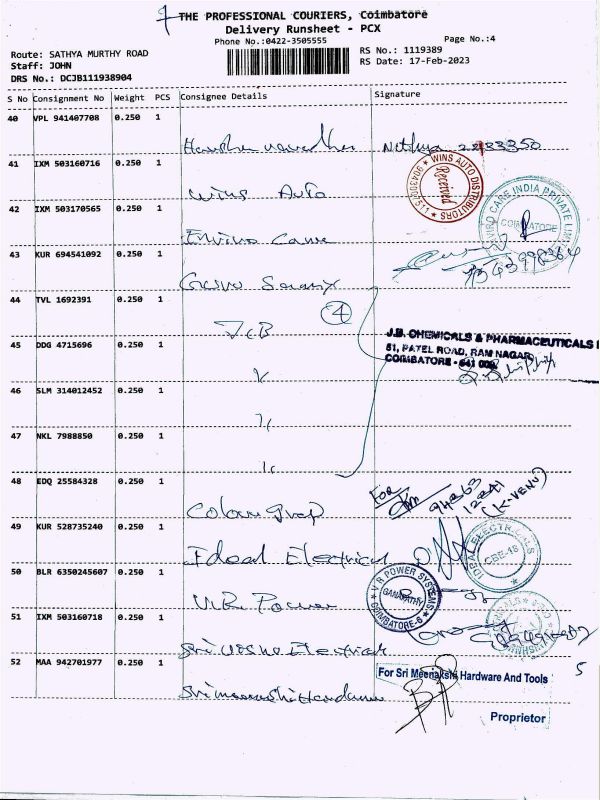 THE PROFESSIONAL COURIERS, Coimbatore
Delivery Runsheet - PCX
Phone No.:0422-3505555
Page No.:4
Route: SATHYA MURTHY ROAD
Staff: JOHN
DRS No.: DCJB111938904
RS No.: 1119389
RS Date: 17-Feb-2023
S No Consignment No Weight PCS Consignee Details Signature
40 VPL 941407708 0.250 1
Nithya 2233350
41 IXM 503160716 0.250 1
Wins Auto
WINS AUTO DISTRIBUTORS
Received
42 IXM 503170565 0.250 1
Enviro Care
ENVIRO CARE INDIA PRIVATE LIMITED
COIMBATORE
43 KUR 694541092 0.250 1
44 TVL 1692391 0.250 1
JCB
4
45 DDG 4715696 0.250 1
J.B. CHEMICALS & PHARMACEUTICALS
51, PATEL ROAD, RAM NAGAR
COIMBATORE - 641 009.
46 SLM 314012452 0.250 1
47 NKL 7988850 0.250 1
48 EDQ 25584328 0.250 1
Colour Grap
For
94863
(K-VENU)
49 KUR 528735240 0.250 1
Ideal Electrical
CBE-18
50 BLR 6350245607 0.250 1
V.R. Power
V R POWER SYSTEMS
GANAPATHY
COIMBATORE-6
51 IXM 503160718 0.250 1
Electrical
52 MAA 942701977 0.250 1
For Sri Meenakshi Hardware And Tools
5
Proprietor